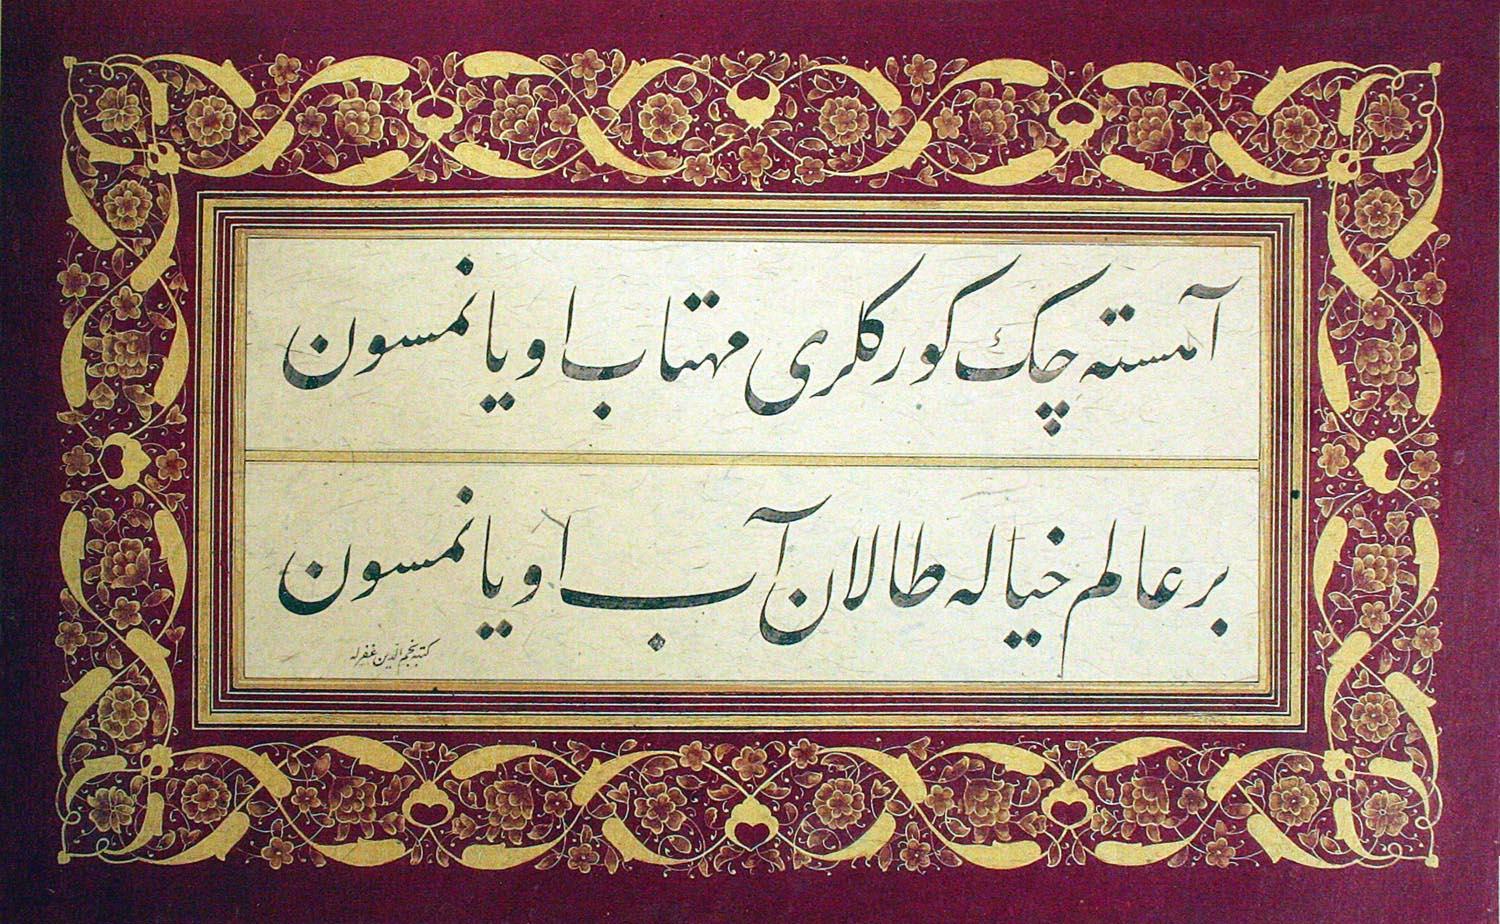 آهسته چك كورכلری مهتاب اویانمسون
بر عالم خیاله طالان آب اویانمسون
كتبه نجم الدین غفر له